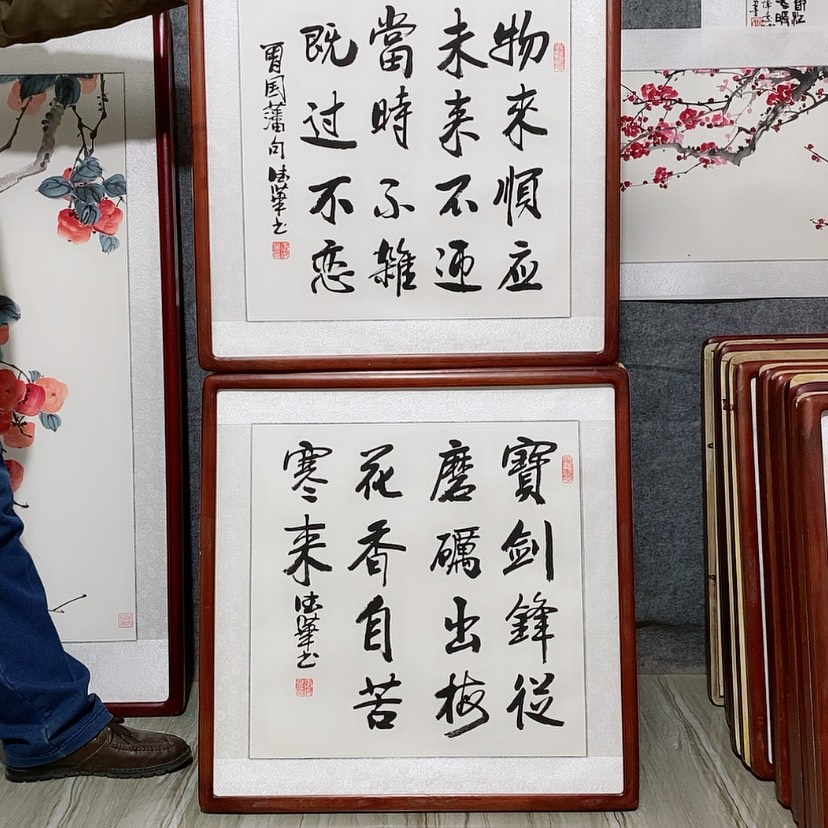 物來順应
未来不迎
當時不雜
既过不恋
曾国藩句
寶劍鋒從
磨礪出梅
花香自苦
寒来